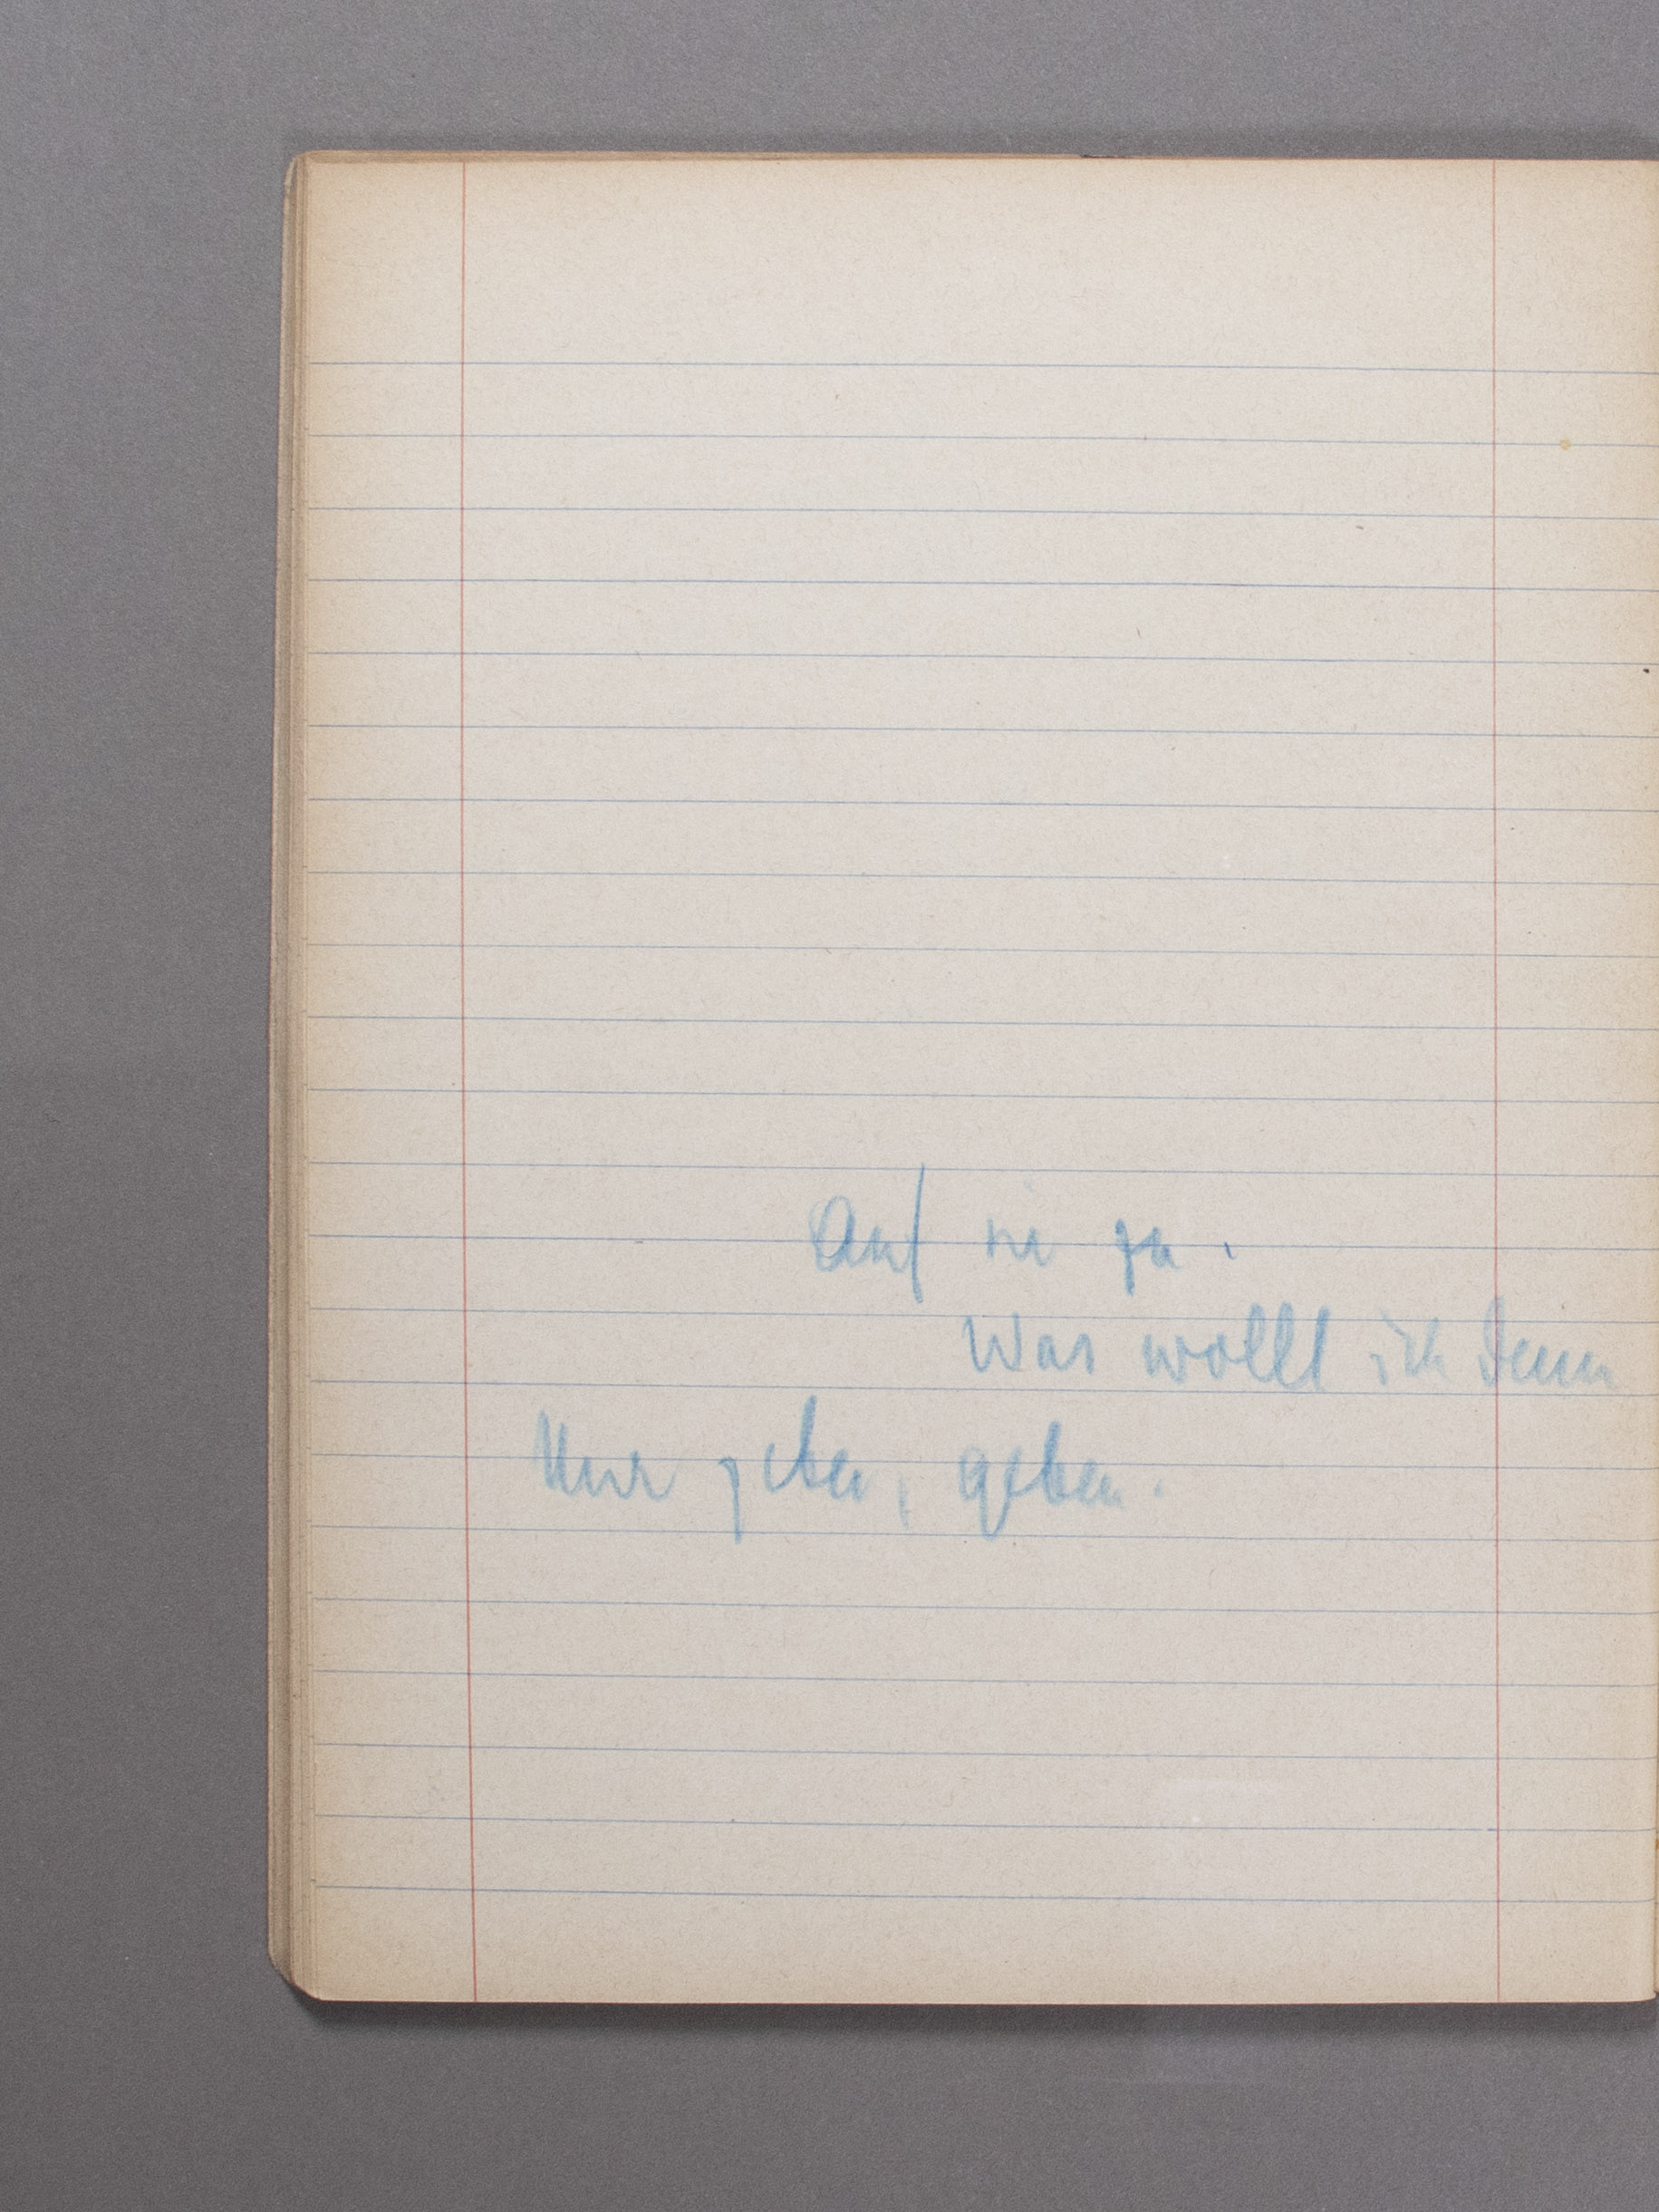 Auf sie zu.
Was wollt ich denn
Nur geben, geben.